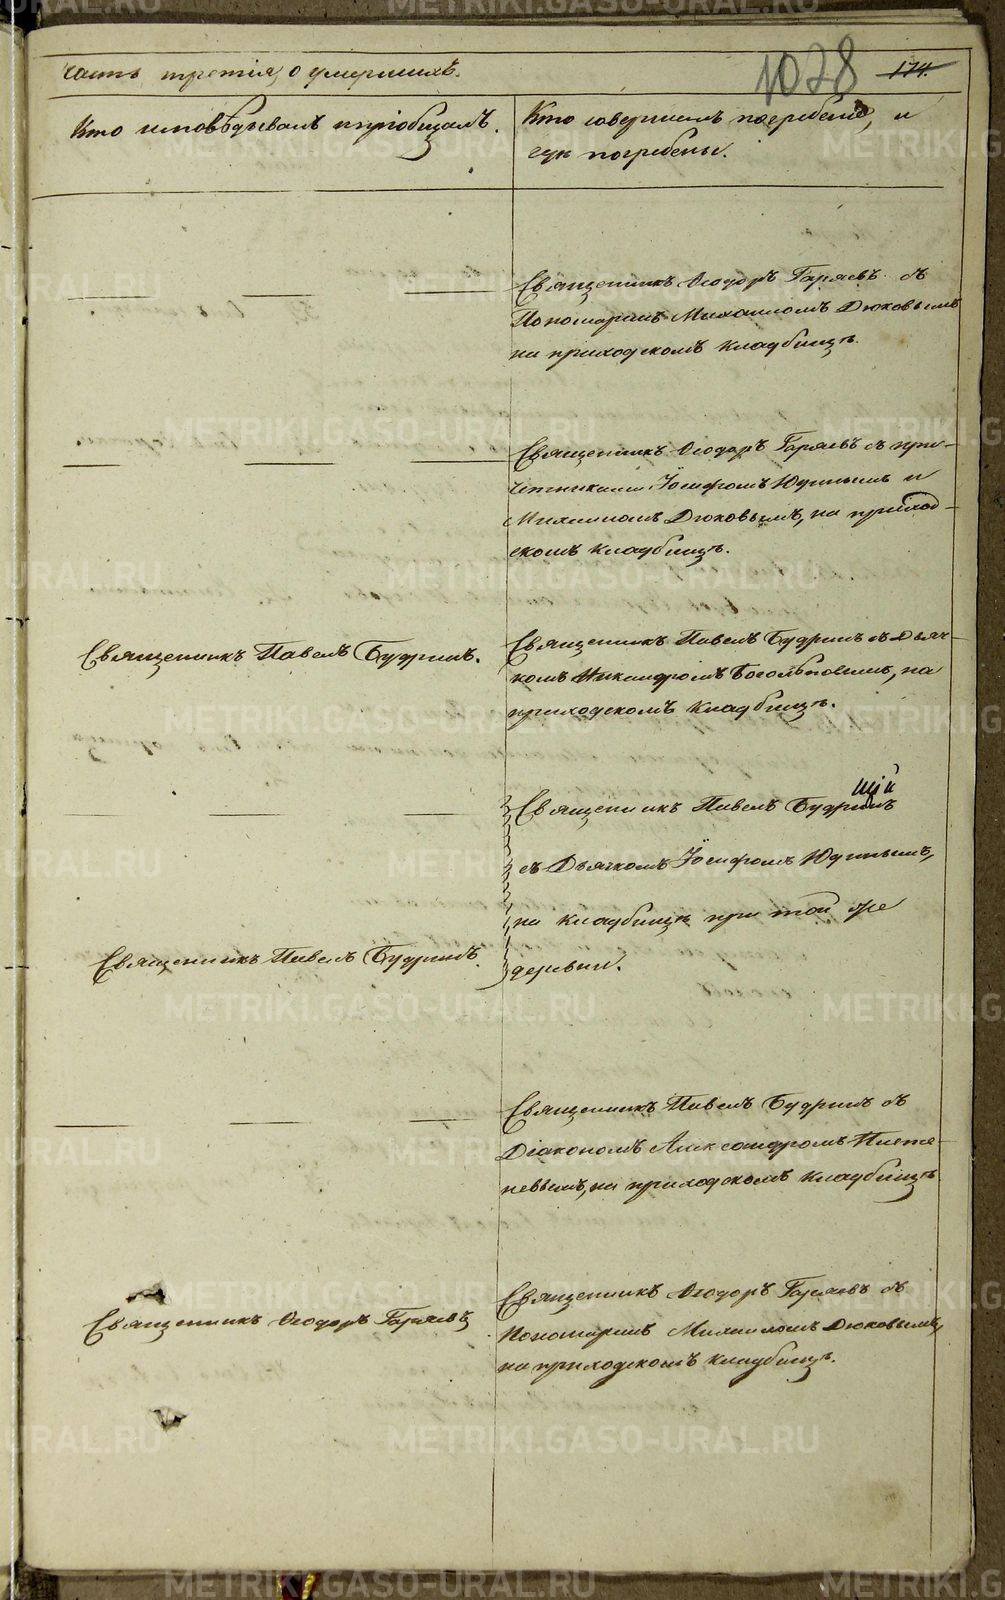 часть третія, о умершихъ.
1028 174.
Кто исповѣдывалъ и пріобщалъ.
Кто совершалъ погребеніе, и
гдѣ погребены.
Священникъ Ѳеодоръ Гаряевъ съ
Пономаремъ Михаиломъ Дюковымъ
на приходскомъ кладбищѣ.
Священникъ Ѳеодоръ Гаряевъ съ при-
четниками Іосифомъ Юдинымъ и
Михаиломъ Дюковымъ, на приход-
скомъ кладбищѣ.
Священникъ Павелъ Будринъ.
Священникъ Павелъ Будринъ съ Дьяч-
комъ Никандромъ Боголѣповымъ, на
приходскомъ кладбищѣ.
Священникъ Павелъ Будринъ
съ Дьячкомъ Іосифомъ Юдинымъ,
на кладбищѣ при той же
деревни.
Священникъ Павелъ Будринъ.
Священникъ Павелъ Будринъ съ
Діакономъ Александромъ
на приходскомъ кладбищѣ
Священникъ Ѳеодоръ Гаряевъ
Священникъ Ѳеодоръ Гаряевъ съ
Пономаремъ Михаиломъ Дюковымъ,
на приходскомъ кладбищѣ.
METRIKI.GASO-URAL.RU